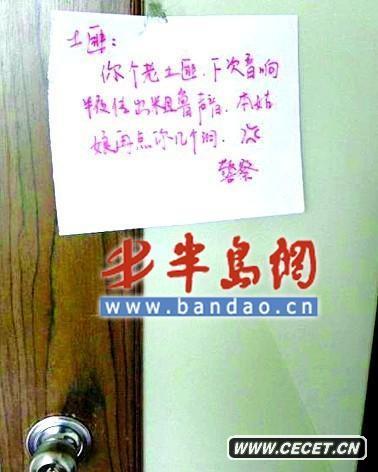 土匪：
你个老土匪，下次音响
半夜传出粗鲁声音，本姑
娘再点你几个洞。
警察
半岛網
www.bandao.cn
WWW.CECET.CN